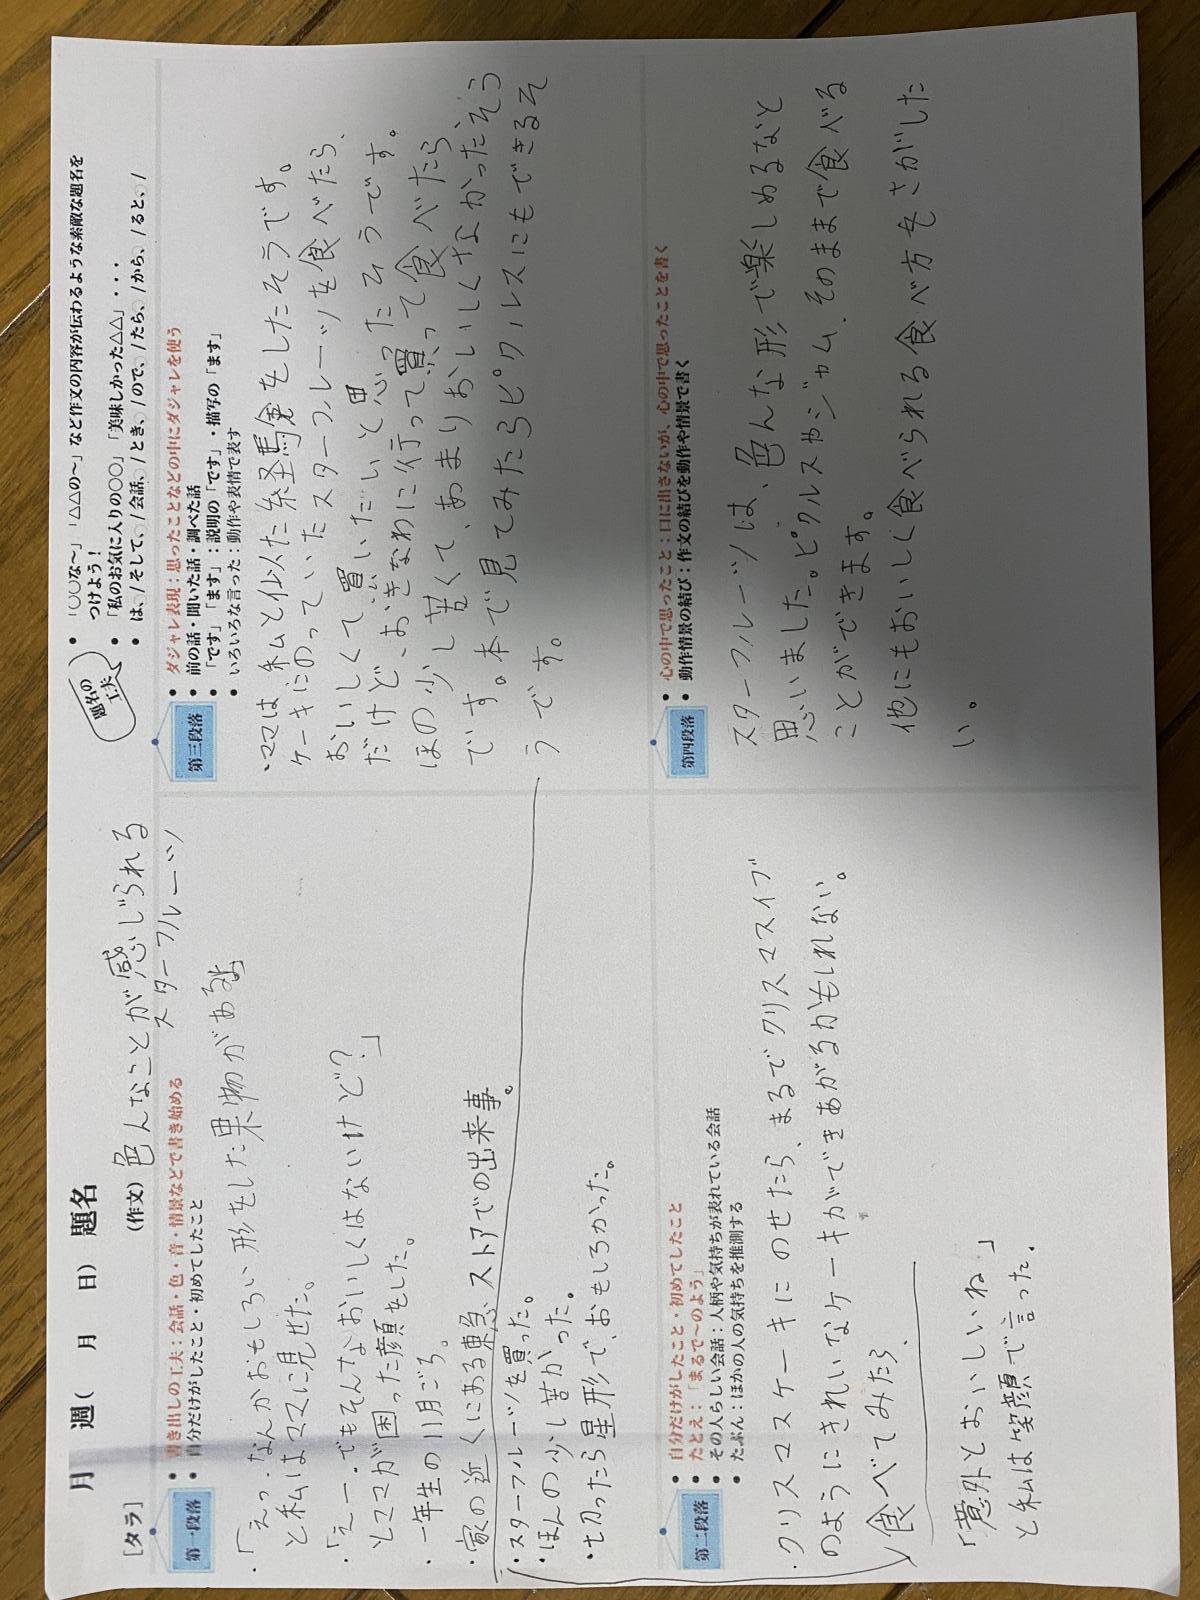 月　週（　月　日）題名
［タラ］
（作文）色んなことが感じられる
スターフルーツ
題名の
工夫
• 「〇〇な～」「△△の～」など作文の内容が伝わるような素敵な題名を
つけよう！
• 「私のお気に入りの〇〇」「美味しかった△△」・・・
• は、/そして、/会話、/とき、/ので、/たら、/から、/ると、/
第一段落
• 書き出しの工夫：会話・色・音・情景などで書き始める
• 自分だけがしたこと・初めてしたこと
・「えっ、なんかおもしろい形をした果物があるよ」
と私はママに見せた。
・「えー、でもそんなおいしくはないけど？」
とママが困った顔をした。
・一年生の11月ごろ。
・家の近くにある東急ストアでの出来事。
・スターフルーツを買った。
・ほんの少し苦かった。
・切ったら星形で、おもしろかった。
第二段落
• 自分だけがしたこと・初めてしたこと
• たとえ：「まるで～のよう」
• その人らしい会話：人柄や気持ちが表れている会話
• たぶん：ほかの人の気持ちを推測する
・クリスマスケーキにのせたら、まるでクリスマスイブ
のようにきれいなケーキができあがるかもしれない。
食べてみたら、
「意外とおいしいね。」
と私は笑顔で言った。
第三段落
• ダジャレ表現：思ったことなどの中にダジャレを使う
• 前の話・聞いた話・調べた話
• 「です」「ます」：説明の「です」・描写の「ます」
• いろいろな言った：動作や表情で表す
・ママは私と似た経験をしたそうです。
ケーキにのっていたスターフルーツを食べたら、
おいしくて買いたいと思ったそうです。
だけど、おきなわに行って買って食べたら
ほの少し苦くて、あまりおいしくなかったそう
です。本で見てみたらピクルスにもできるそ
うです。
第四段落
• 心の中で思ったこと：口に出さないが、心の中で思ったことを書く
• 動作情景の結び：作文の結びを動作や情景で書く
スターフルーツは、色んな形で楽しめるなと
思いました。ピクルスやジャム、そのままで食べる
ことができます。
他にもおいしく食べられる食べ方をさがした
い。